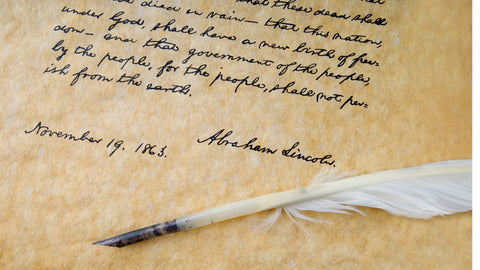 these dead shall
died in vain — that this nation,
under God, shall have a new birth of free-
dom — and that government of the people,
by the people, for the people, shall not per-
ish from the earth.
November 19, 1863.
Abraham Lincoln.